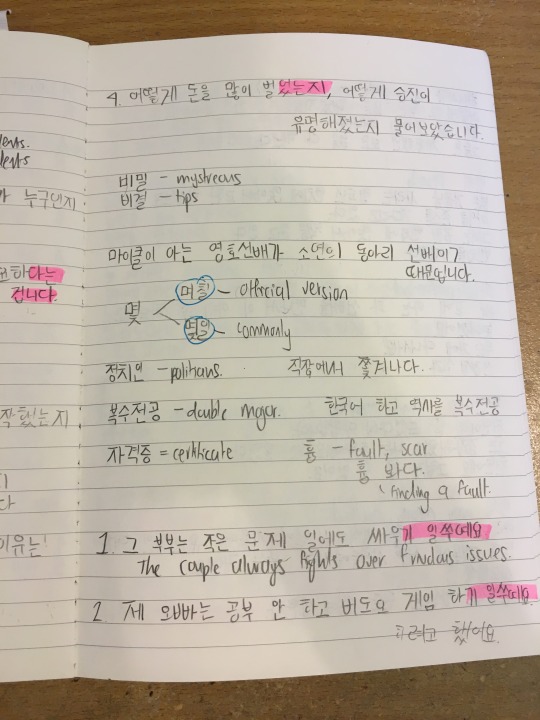 ents.
lents
가 누구인지
하다는
겁니다.
작했는지
다
이유는
4. 어떻게 돈을 많이 벌었는지, 어떻게 승진이
유명해졌는지 물어보았습니다.
비밀 - mystreous
비결 - tips
마이클이 아는 영호선배가 소연의 동아리 선배이기
때문입니다.
몇
며칠 - official version
몇일 - commonly
정치인 - politians. 직장에서 쫓겨나다.
복수전공 - double major. 한국어 하고 역사를 복수전공
자격증 = certificate 흠 - fault, scar
흠 봐다.
finding a fault.
1. 그 부부는 작은 문제 일에도 싸우기 일쑤예요
The couple always fights over issues.
2 제 오빠는 공부 안 하고 비도오 게임 하기 일쑤예요.
했어요.